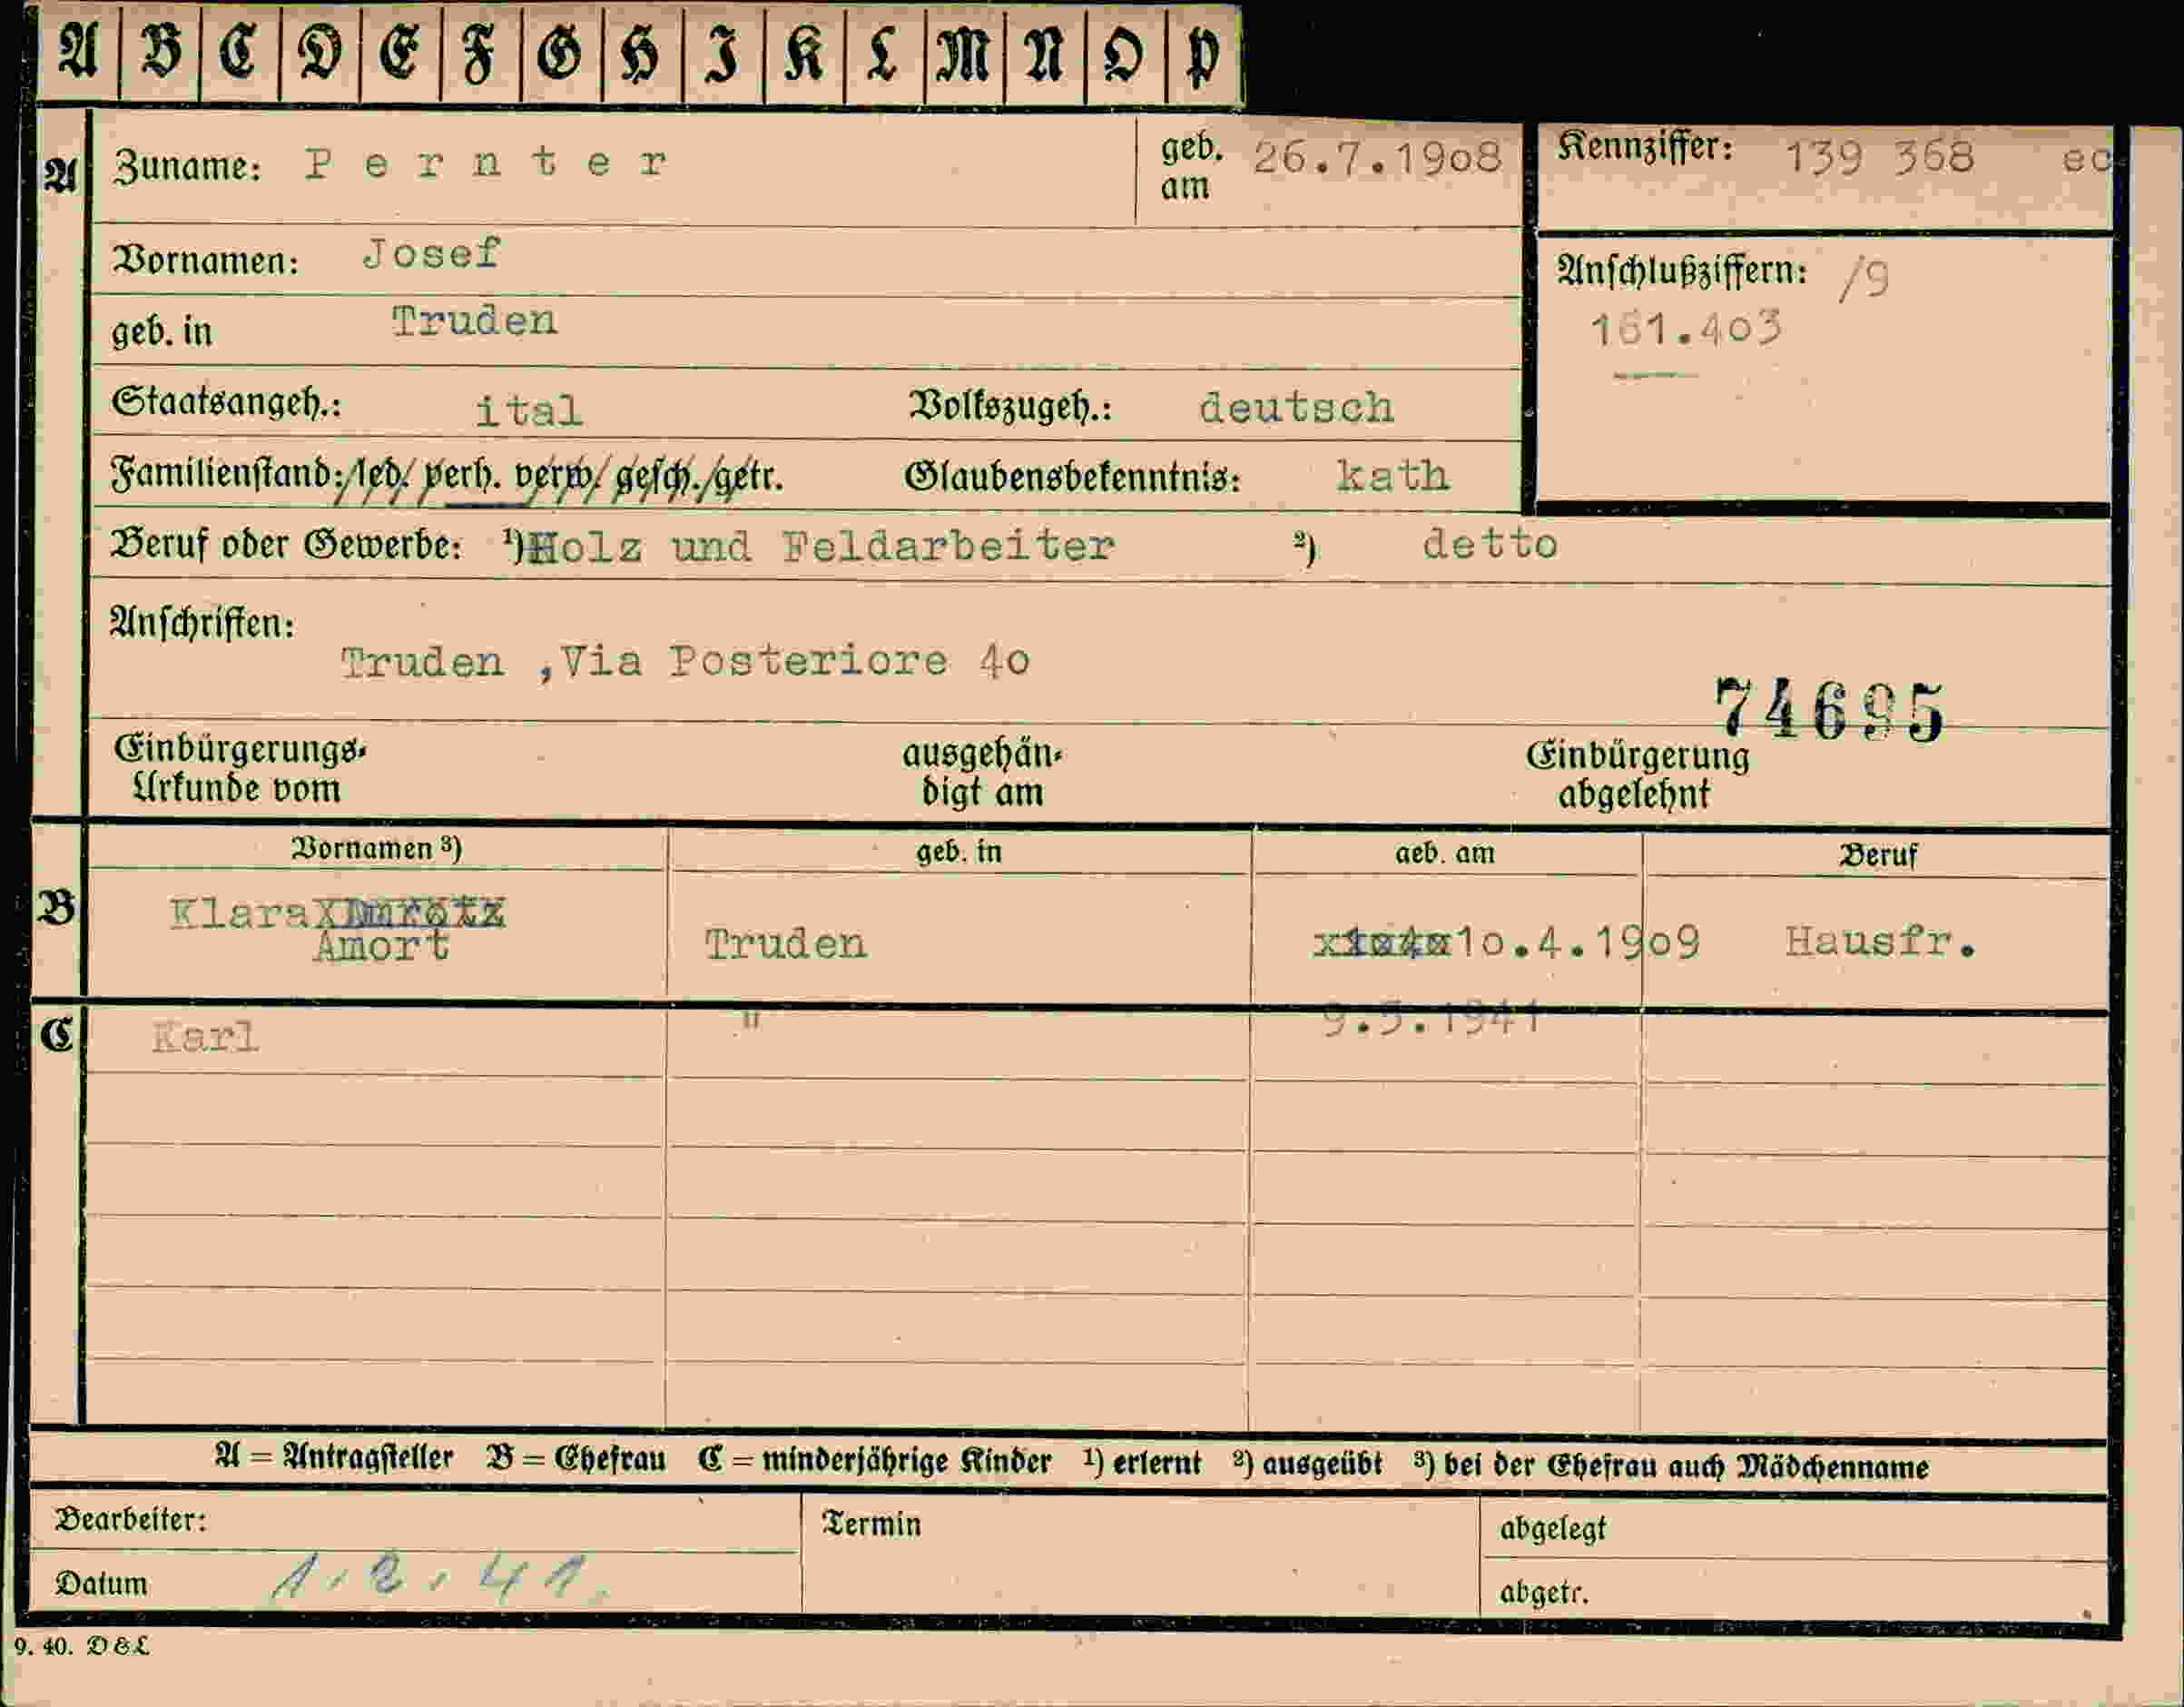 A B C D E F G H I K L M N O P
A Zuname: Pernter geb. am 26.7.19o8 Kennziffer: 139 368 ec
Vornamen: Josef Anschlußziffern: /9
geb. in Truden 161.4o3
Staatsangeh.: ital Volkszugeh.: deutsch
Familienstand: led. verh. verw. gesch. getr. Glaubensbekenntnis: kath
Beruf oder Gewerbe: ¹) Holz und Feldarbeiter ²) detto
Anschriften:
Truden ,Via Posteriore 4o
74695
Einbürgerungs- ausgehän- Einbürgerung
Urkunde vom digt am abgelehnt
Vornamen ³) geb. in geb. am Beruf
B Klara
Amort Truden 1o.4.19o9 Hausfr.
C Karl " 9.5.1941
A = Antragsteller B = Ehefrau C = minderjährige Kinder ¹) erlernt ²) ausgeübt ³) bei der Ehefrau auch Mädchenname
Bearbeiter: Termin abgelegt
Datum 1.2.41. abgetr.
9. 40. D&L